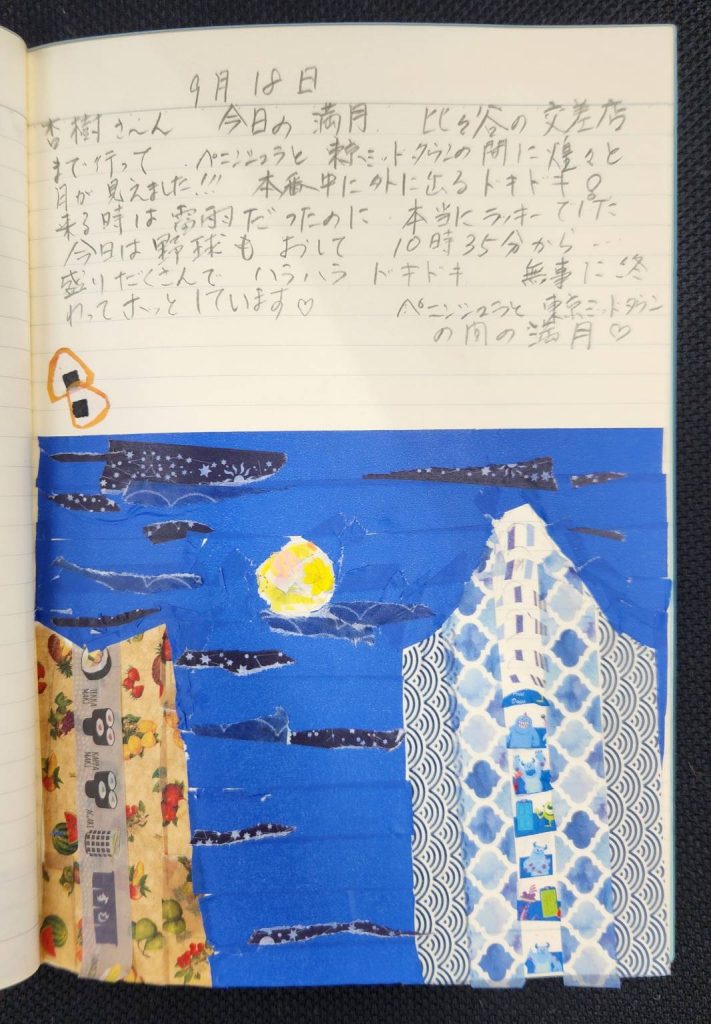 9月18日
杏樹さ〜ん 今日の満月 比々谷の交差店
まで行って ペニンシュラと東京ミッドタウンの間に煌々と
月が見えました!!! 本番中に外に出るドキドキ
来る時は雷雨だったのに 本当にラッキーでした
今日は野球もおして 10時35分から…
盛りだくさんで ハラハラ ドキドキ 無事に終
わってホッとしています♡
ペニンシュラと東京ミッドタウン
の間の満月♡
TEKKA MAKI
KAPPA MAKI
すし